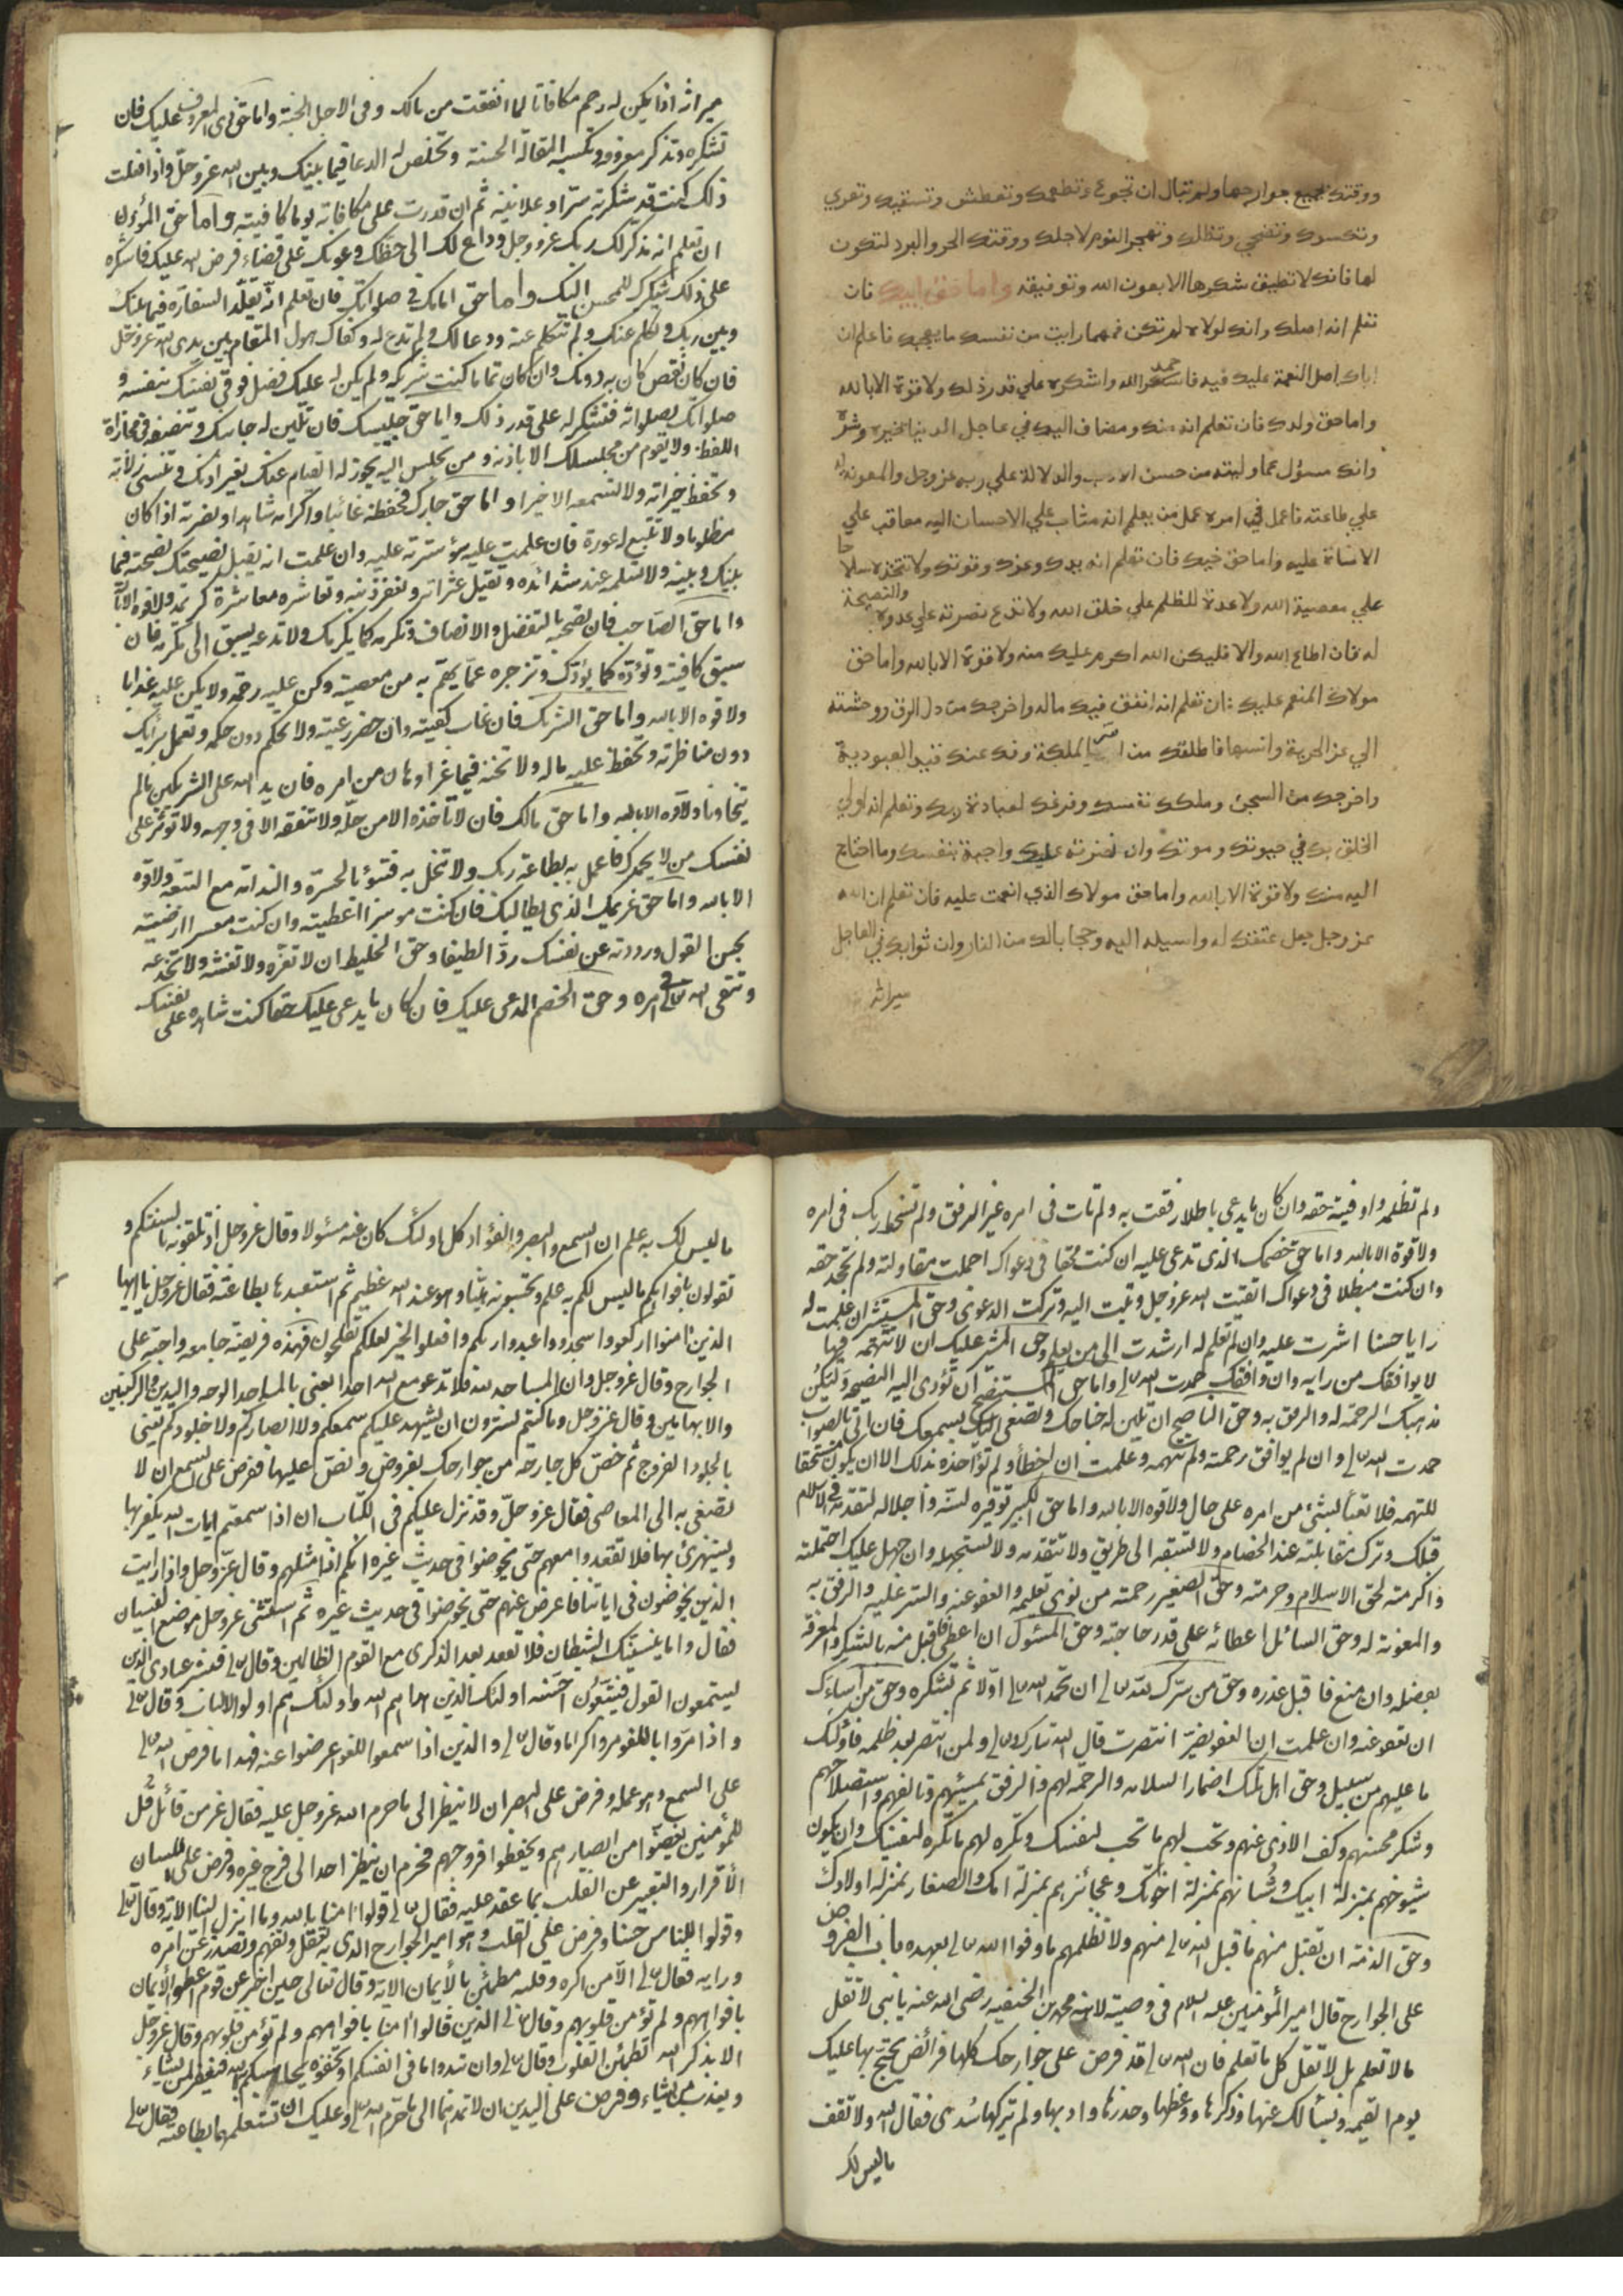 ووقتك بجميع جوارحها ولم تبال ان تجوع وتطعمك وتعطش وتسقيك وتعري
وتكسوك وتضحي وتظلك وتهجر النوم لاجلك ووقتك الحر والبرد لتكون
لها فانك لا تطيق شكرها الا بعون الله وتوفيقه واما حق ابيك فان
تعلم انه اصلك وانك لولاه لم تكن فمهما رايت من نفسك ما يعجبك فاعلم ان
اباك اصل النعمة عليك فيه فاحمد الله واشكره علي قدر ذلك ولا قوة الا بالله
واما حق ولدك فان تعلم انه منك ومضاف اليك في عاجل الدنيا بخيره وشره
وانك مسؤل عما وليته من حسن الادب والدلالة علي ربه عز وجل والمعونة له
علي طاعته فاعمل في امره عمل من يعلم انه مثاب علي الاحسان اليه معاقب علي
الاساة عليه واما حق اخيك فان تعلم انه يدك وعزك وقوتك ولا تتخذه سلاحا
علي معصية الله ولا عدة للظلم علي خلق الله ولا تدع نصرته علي عدوه والنصيحة
له فان اطاع الله والا فليكن الله اكرم عليك منه ولا قوة الا بالله واما حق
مولاك المنعم عليك ان تعلم انه انفق فيك ماله واخرجك من ذل الرق ووحشته
الي عز الحرية وانسها فاطلقك من اسر الملكة وفك عنك قيد العبودية
واخرجك من السجن وملكك نفسك وفرغك لعبادة ربك وتعلم انه اولي
الخلق بك في حيوتك وموتك وان نصرته عليك واجبة بنفسك وما احتاج
اليه منك ولا قوة الا بالله واما حق مولاك الذي انعمت عليه فان تعلم ان الله
عز وجل جعل عتقك له وسيلة اليه وحجابا لك من النار وان ثوابك في العاجل
ميراثه
ميراثه اذا لم يكن له رحم مكافاتا لما انفقت من مالك وفي الاجل الجنة واما حق ذي المعروف عليك فان
تشكره وتذكر معروفه وتكسبه المقالة الحسنة وتخلص له الدعا فيما بينك وبين الله عز وجل فاذا فعلت
ذلك كنت قد شكرته سرا وعلانية ثم ان قدرت على مكافاته يوما كافيته واما حق المؤذن
ان تعلم انه مذكر لك ربك عز وجل وداع لك الى حظك وعونك على قضاء فرض الله عليك فاشكره
على ذلك شكرك للمحسن اليك واما حق امامك في صلواتك فان تعلم انه يقلد السفارة فيما بينك
وبين ربك وتكلم عنك ولم تتكلم عنه ودعا لك ولم تدع له وكفاك هول المقام بين يدى الله عز وجل
فان كان نقص كان به دونك وان كان تماما كنت شريكه ولم يكن له عليك فضل فوقى نفسك بنفسه و
صلواتك بصلواته فتشكر له على قدر ذلك واما حق جليسك فان تلين له جانبك وتنصفه في مجازاة
اللفظ ولا تقوم من مجلسك الا باذنه ومن يجلس اليه يجوز له القيام عنك بغير اذنك وتنسى زلاته
وتحفظ خيراته ولا تسمعه الا خيرا واما حق جارك فحفظه غائبا واكرامه شاهدا ونصرته اذا كان
مظلوما ولا تتبع له عورة فان علمت عليه سوء سترته عليه وان علمت انه يقبل نصيحتك نصحته فيما
بينك وبينه ولا تسلمه عند شدائده وتقيل عثراته وتغفر ذنبه وتعاشره معاشرة كريمة ولا قوة الا بالله
واما حق الصاحب فان تصحبه بالتفضل والانصاف وتكرمه كما يكرمك ولا تدعه يسبق الى مكرمة فان
سبق كافيته وتؤده كما يودك وتزجره عما يهم به من معصيته وكن عليه رحمة ولا يكن عليه عذابا
ولا قوة الا بالله واما حق الشريك فان غاب كفيته وان حضر رعيته ولا تحكم دون حكمه وتعمل برأيك
دون مناظرته وتحفظ عليه ماله ولا تخنه فيما عز او هان من امره فان يد الله على الشريكين مالم
يتخاونا ولا قوة الا بالله واما حق مالك فان لا تأخذه الا من حله ولا تنفقه الا في وجهه ولا تؤثر على
نفسك من لا يحمدك فاعمل به بطاعة ربك ولا تبخل به فتبوء بالحسرة والندامة مع التبعة ولا قوة
الا بالله واما حق غريمك الذى يطالبك فان كنت موسرا اعطيته وان كنت معسرا ارضيته
بحسن القول ورددته عن نفسك ردا لطيفا وحق الخليط ان لا تغره ولا تغشه ولا تخدعه
وتتقى الله تعالى في امره وحق الخصم المدعى عليك فان كان ما يدعى عليك حقا كنت شاهده على نفسك
ولم تظلمه واوفيته حقه وان كان ما يدعى باطلا رفقت به ولم تات في امره غير الرفق ولم تسخط ربك في امره
ولا قوة الا بالله واما حق خصمك الذى تدعى عليه ان كنت محقا في دعواك اجملت مقاولته ولم تجحد حقه
وان كنت مبطلا في دعواك اتقيت الله عز وجل وتبت اليه وتركت الدعوى وحق المستشير ان علمت له
رايا حسنا اشرت عليه وان لم تعلم له ارشدت الى من يعلم وحق المشير عليك ان لا تتهمه فيما
لا يوافقك من رايه وان وافقك حمدت الله تعالى واما حق المستنصح ان تؤدى اليه النصيحة وليكن
مذهبك الرحمة له والرفق به وحق الناصح ان تلين له جناحك وتصغى اليه بسمعك فان اتى بالصواب
حمدت الله تعالى وان لم يوافق رحمته ولم تتهمه وعلمت انه اخطأ ولم تؤاخذه بذلك الا ان يكون مستحقا
للتهمة فلا تعبأ بشئ من امره على حال ولا قوة الا بالله واما حق الكبير توقيره لسنه واجلاله لتقدمه في الاسلام
قبلك وترك مقابلته عند الخصام ولا تسبقه الى طريق ولا تتقدمه ولا تستجهله وان جهل عليك احتملته
واكرمته لحق الاسلام وحرمته وحق الصغير رحمته من نوى تعليمه والعفو عنه والستر عليه والرفق به
والمعونة له وحق السائل اعطائه على قدر حاجته وحق المسئول ان اعطى فاقبل منه بالشكر والمعرفة
بفضله وان منع فاقبل عذره وحق من سرك لله تعالى ان تحمد الله تعالى اولا ثم تشكره وحق من اساءك
ان تعفو عنه وان علمت ان العفو يضر انتصرت قال الله تبارك وتعالى ولمن انتصر بعد ظلمه فاولئك
ما عليهم من سبيل وحق اهل ملتك اضمار السلامة والرحمة لهم والرفق بمسيئهم وتالفهم واستصلاحهم
وشكر محسنهم وكف الاذى عنهم وتحب لهم ما تحب لنفسك وتكره لهم ما تكره لنفسك وان يكون
شيوخهم بمنزلة ابيك وشبانهم بمنزلة اخوتك وعجائزهم بمنزلة امك والصغار بمنزلة اولادك
وحق الذمة ان تقبل منهم ما قبل الله تعالى منهم ولا تظلمهم ما وفوا الله تعالى بعهده باب الفروض
على الجوارح قال امير المؤمنين عليه السلام في وصيته لابنه محمد بن الحنفيه رضى الله عنه يا بنى لا تقل
ما لا تعلم بل لا تقل كل ما تعلم فان الله تعالى قد فرض على جوارحك كلها فرائض يحتج بها عليك
يوم القيمه ويسألك عنها وذكرها ووعظها وحذرها وادبها ولم يتركها سدى فقال الله ولا تقف
ما ليس لك
ما ليس لك به علم ان السمع والبصر والفؤاد كل اولئك كان عنه مسئولا وقال عز وجل اذ تلقونه بالسنتكم و
تقولون بافواهكم ما ليس لكم به علم وتحسبونه هينا وهو عند الله عظيم ثم استعبدها بطاعته فقال عز وجل يا ايها
الذين امنوا اركعوا واسجدوا واعبدوا ربكم وافعلوا الخير لعلكم تفلحون فهذه فريضة جامعة واجبة على
الجوارح وقال عز وجل وان المساجد لله فلا تدعو مع الله احدا يعنى بالمساجد الوجه واليدين والركبتين
والابهامين وقال عز وجل وما كنتم تسترون ان يشهد عليكم سمعكم ولا ابصاركم ولا جلودكم يعنى
بالجلود الفروج ثم خص كل جارحة من جوارحك بفروض ونص عليها ففرض على السمع ان لا
تصغى به الى المعاصى فقال عز وجل وقد نزل عليكم في الكتاب ان اذا سمعتم ايات الله يكفر بها
ويستهزئ بها فلا تقعدوا معهم حتى يخوضوا في حديث غيره انكم اذا مثلهم وقال عز وجل واذا رايت
الذين يخوضون في اياتنا فاعرض عنهم حتى يخوضوا في حديث غيره ثم استثنى عز وجل موضع النسيان
فقال واما ينسينك الشيطان فلا تقعد بعد الذكرى مع القوم الظالمين وقال تعالى فبشر عبادى الذين
يستمعون القول فيتبعون احسنه اولئك الذين هداهم الله واولئك هم اولو الالباب وقال تعالى
واذا مروا باللغو مروا كراما وقال تعالى والذين اذا سمعوا اللغو اعرضوا عنه فهذا ما فرض الله تعالى
على السمع وهو عمله وفرض على البصر ان لا ينظر الى ما حرم الله عز وجل عليه فقال عز من قائل قل
للمؤمنين يغضوا من ابصارهم ويحفظوا فروجهم فحرم ان ينظر احد الى فرج غيره وفرض على اللسان
الاقرار والتعبير عن القلب بما عقد عليه فقال تعالى قولوا امنا بالله وما انزل الينا الاية وقال تعالى
وقولوا للناس حسنا وفرض على القلب وهو امير الجوارح الذى به تعقل وتفهم وتصدر عن امره
ورايه فقال تعالى الا من اكره وقلبه مطمئن بالايمان الاية وقال تعالى حين اخبر عن قوم اعطوا الايمان
بافواههم ولم تؤمن قلوبهم وقال تعالى الذين قالوا امنا بافواههم ولم تؤمن قلوبهم وقال عز وجل
الا بذكر الله تطمئن القلوب وقال تعالى وان تبدوا ما في انفسكم او تخفوه يحاسبكم به الله فيغفر لمن يشاء
ويعذب من يشاء وفرض على اليدين ان لا تمدهما الى ما حرم الله تعالى وعليك ان تستعملهما بطاعته فقال تعالى